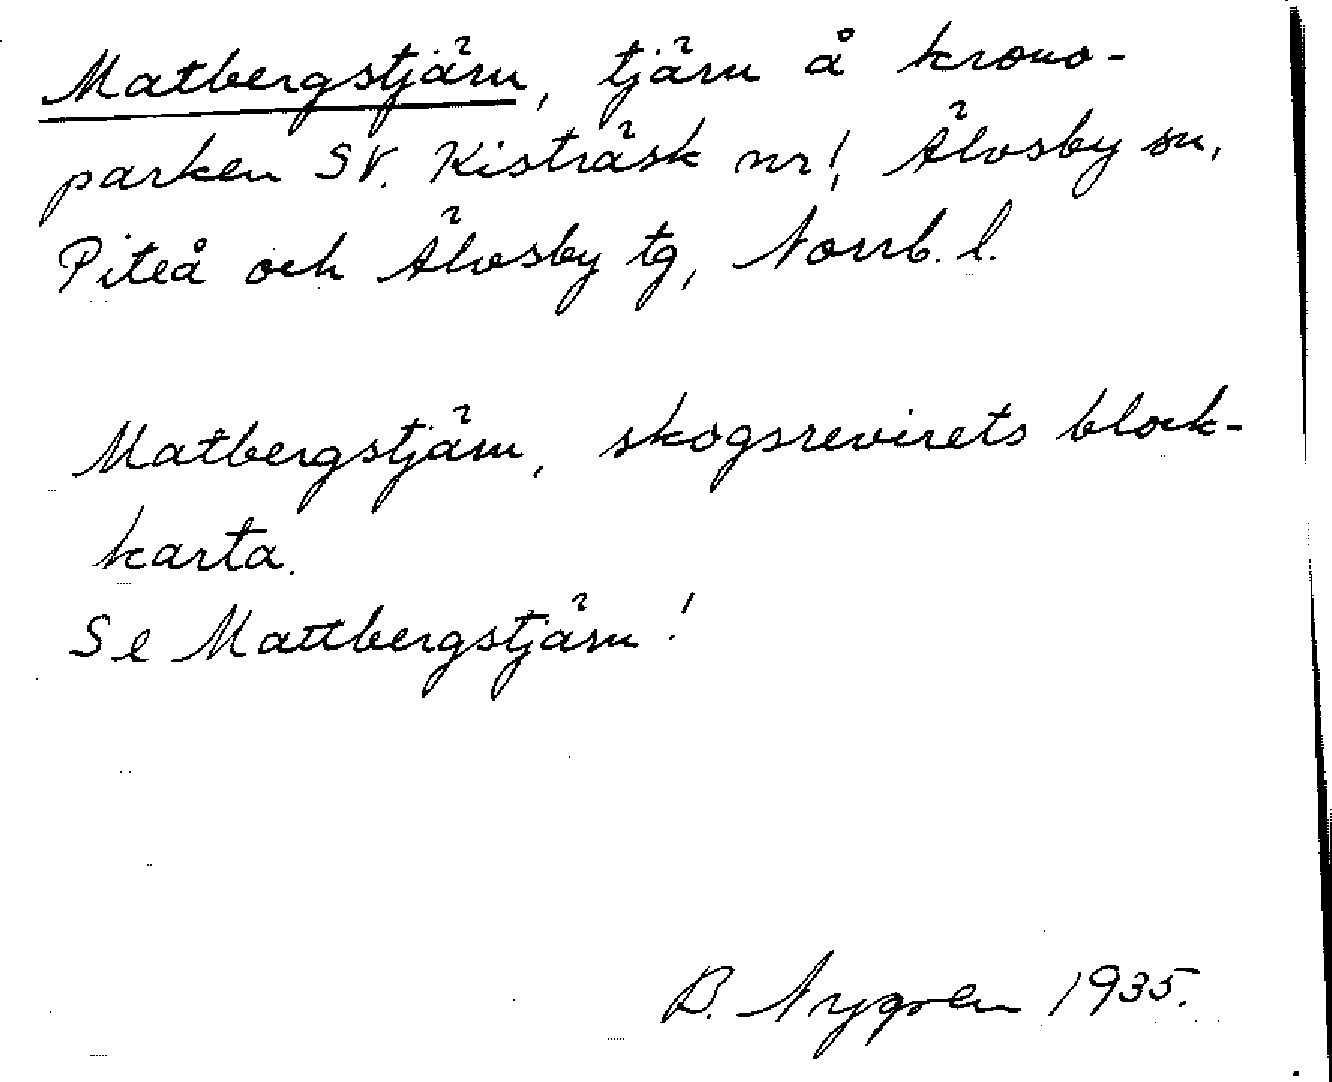 Matbergstjärn, tjärn å krono-
parken SV. Kisträsk nr 1, Älvsby sn,
Piteå och Älvsby tg, Norrb. l.
Matbergstjärn, skogsrevirets block-
karta.
Se Mattbergstjärn!
B. Nygren 1935.